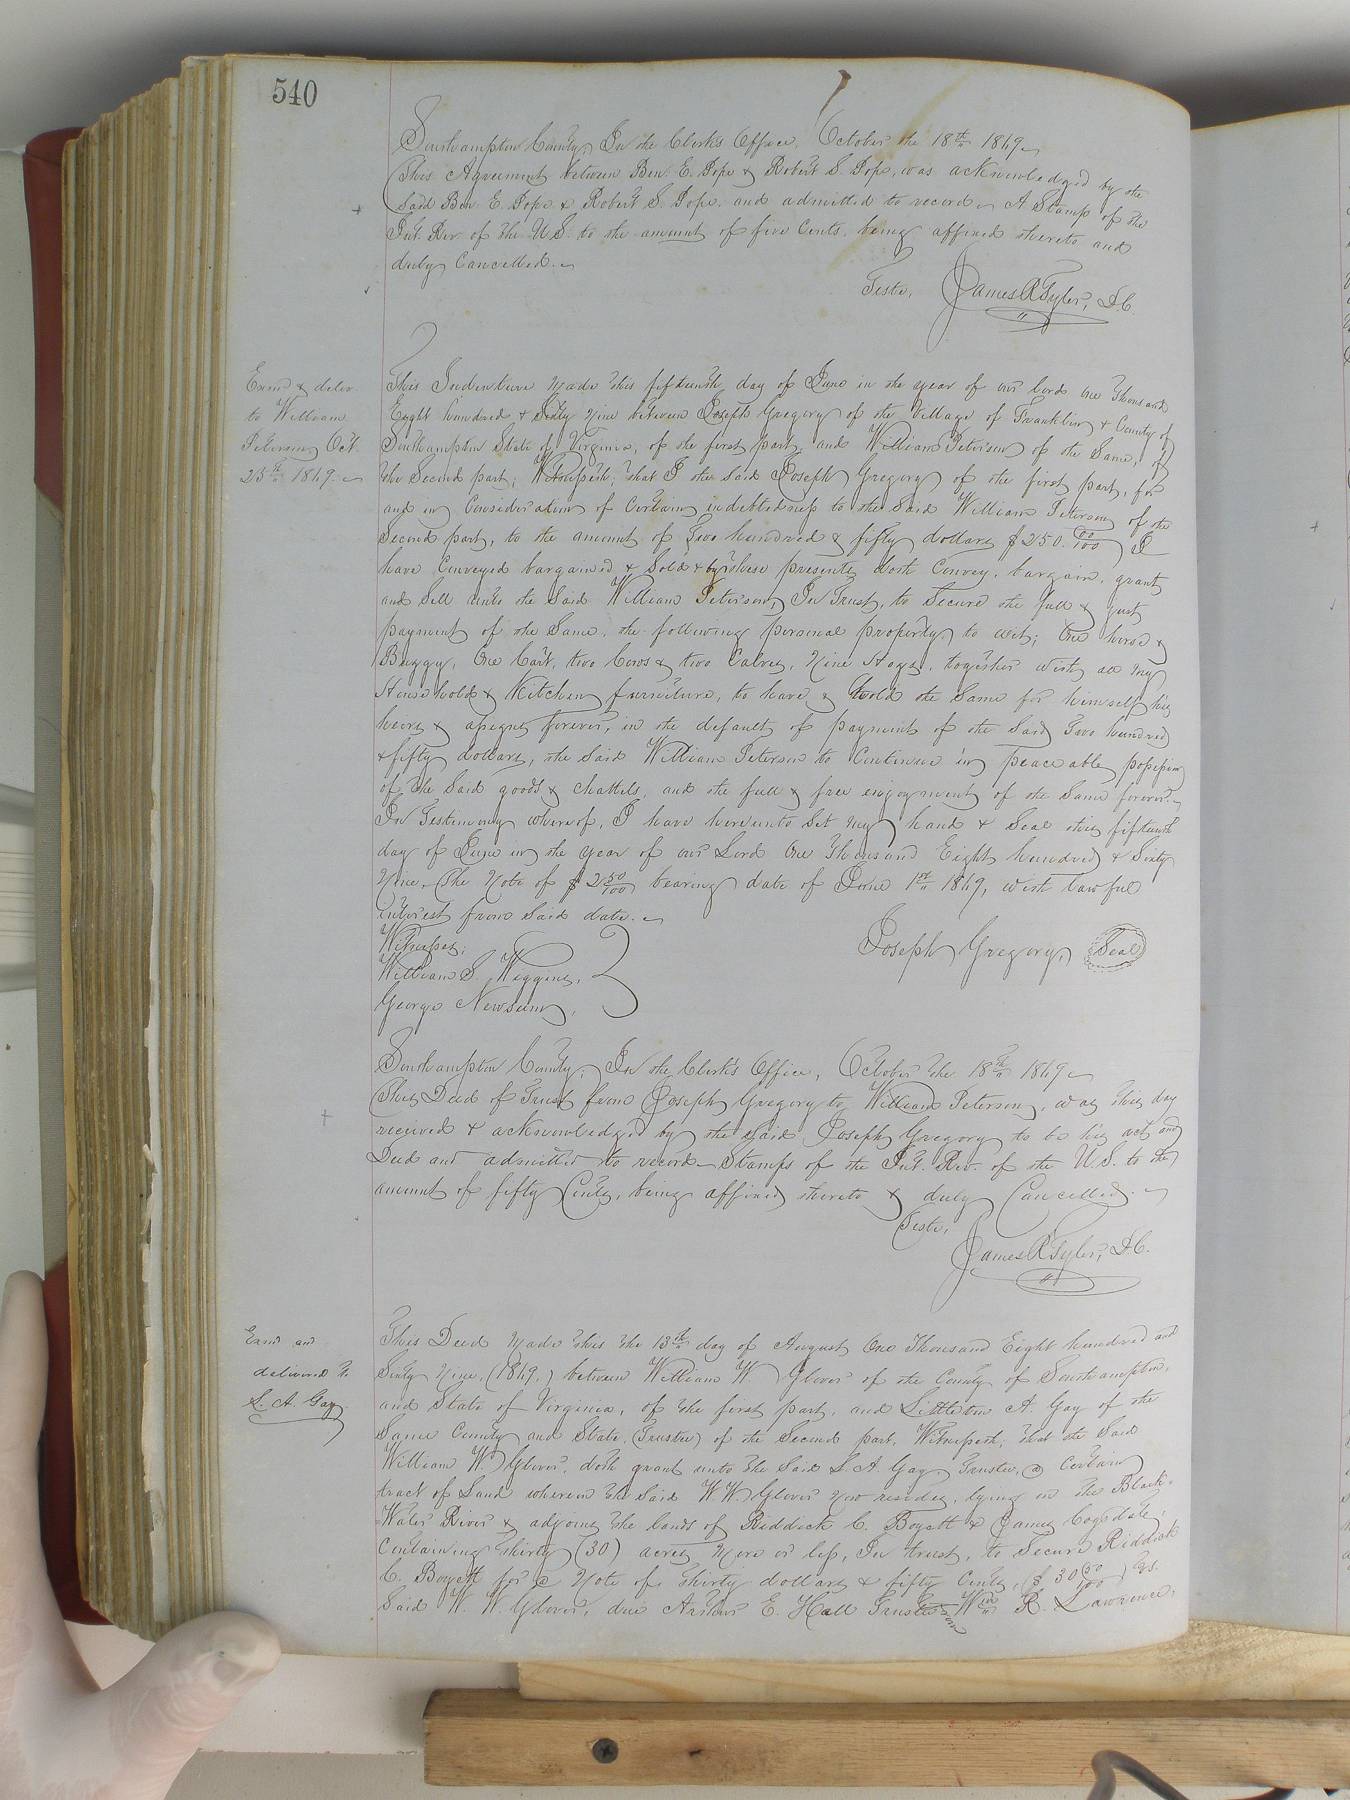 540
Southampton County, In the Clerk's Office, October the 18th 1869
This Agreement between Ben. E. Pope & Robert S. Pope, was acknowledged by the
Said Ben. E. Pope & Robert S. Pope, and admitted to record A Stamp of the
Int. Rev. of the U.S. to the amount of five Cents, being affixed thereto and
duly Cancelled.
Teste, James R Tyler, D.C.
Exmd & deliv.
to William
Peterson Oct.
25th 1869.
This Indenture Made this fifteenth day of June in the year of our Lord One Thousand
Eight hundred & Sixty Nine between Joseph Gregory of the Village of Franklin & County of
Southampton State of Virginia, of the first part, and William Peterson of the Same, of
the Second part; Witnesseth; that I the Said Joseph Gregory of the first part, for
and in Consideration of Certain indebtedness to the Said William Peterson of the
Second part, to the amount of Two hundred & fifty dollars $250.00/100 I
have Conveyed bargained & Sold & by these presents doth Convey, bargain, grant
and Sell unto the Said William Peterson, In Trust, to Secure the full & just
payment of the Same, the following personal property, to wit; One horse &
Buggy, One Cart, two Cows & two Calves, Nine Hogs, together with all my
Household & Kitchen furniture, to have & hold the Same for himself his
heirs & assigns forever, in the default of payment of the Said Two hundred
& fifty dollars, the Said William Peterson to Continue in peaceable possession
of the Said goods & chattels, and the full & free enjoyment of the Same forever.
In Testimony whereof, I have hereunto Set my hand & Seal this fifteenth
day of June in the year of our Lord One Thousand Eight hundred & Sixty
Nine. The Note of $2 50/100 bearing date of June 1st 1869, with lawful
interest from Said date.
Witnesses;
Joseph Gregory, Seal
William S. Wiggins,
George Newsum,
Southampton County; In the Clerk's Office, October the 18th 1869
This Deed of Trust from Joseph Gregory to William Peterson, was this day
received & acknowledged by the Said Joseph Gregory to be his act and
Deed and admitted to record Stamps of the Int. Rev. of the U.S. to the
amount of fifty Cents, being affixed thereto & duly Cancelled.
Teste,
James R Tyler, D.C.
Exmd and
delivered to
L. A. Gay
This Deed Made this the 13th day of August One Thousand Eight hundred and
Sixty Nine, (1869,) between William W. Glover of the County of Southampton,
and State of Virginia, of the first part, and Littleton A. Gay of the
Same County and State, (Trustee) of the Second part, Witnesseth, that the Said
William W. Glover, doth grant unto the Said L. A. Gay Trustee, a Certain
tract of Land wherein the Said W W. Glover now resides, lying on the Black-
Water River & adjoins the lands of Riddick C. Boyett & James Cogsdale,
Containing thirty (30) acres More or less, In trust, to Secure Riddick
C. Boyett for a Note of thirty dollars & fifty Cents, ($30 50/100)
Said W. W. Glover, due Arthur E. Hall Trustee Wm R. Lawrence,